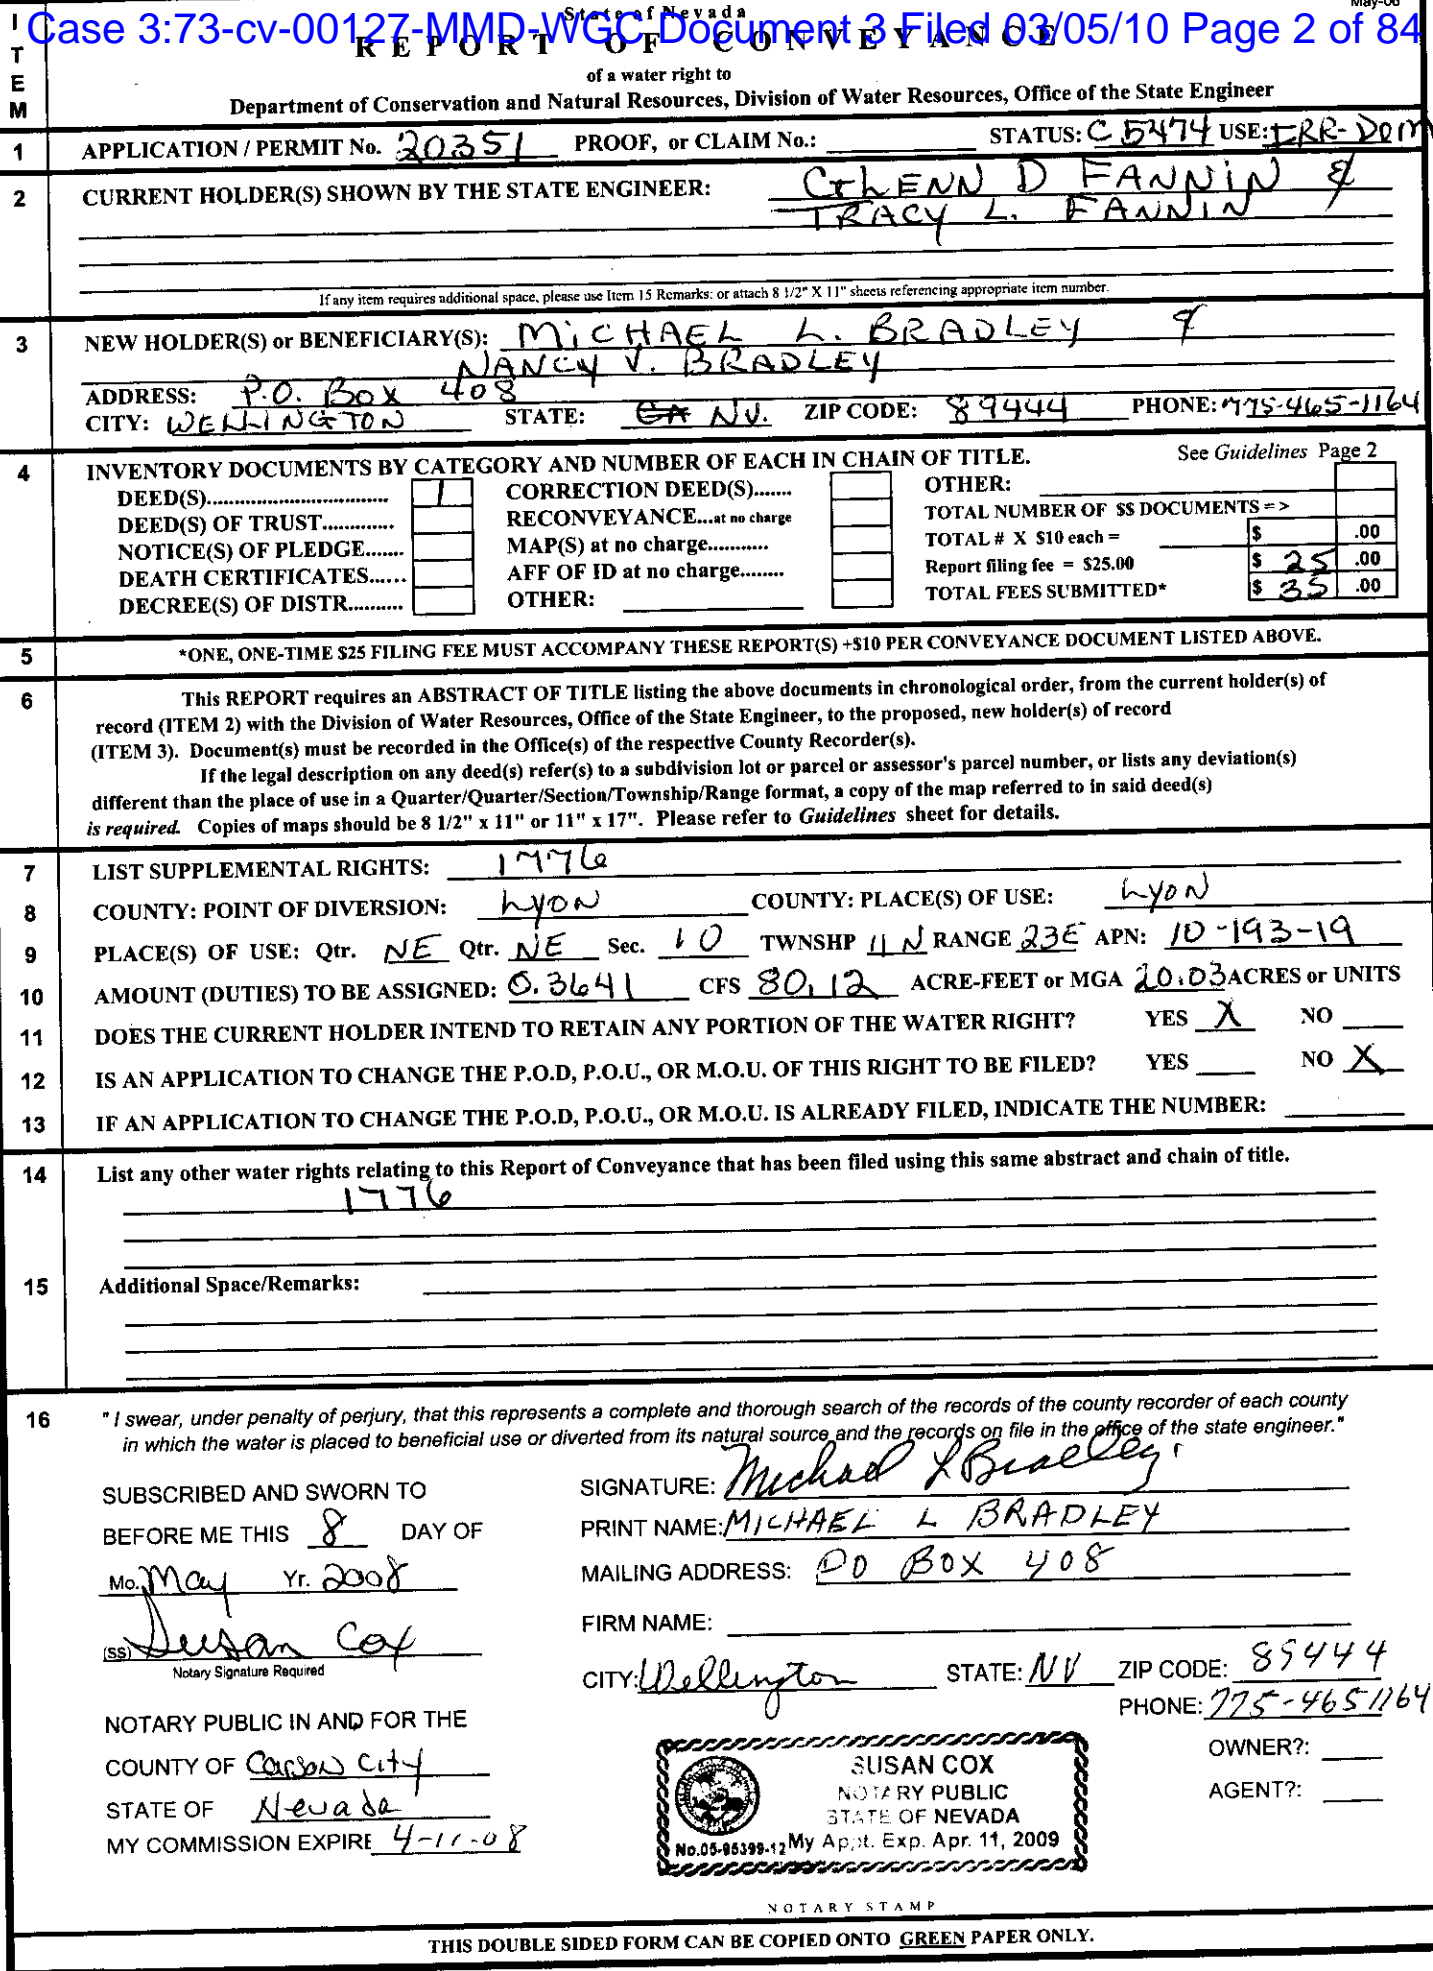 May-06
Case 3:73-cv-00127-MMD-WGC Document 3 Filed 03/05/10 Page 2 of 84
ITEM
State of Nevada
REPORT OF CONVEYANCE
of a water right to
Department of Conservation and Natural Resources, Division of Water Resources, Office of the State Engineer
1 APPLICATION / PERMIT No. 20351 PROOF, or CLAIM No.: STATUS: C 5474 USE: IRR-Dom
2 CURRENT HOLDER(S) SHOWN BY THE STATE ENGINEER: GLENN D FANNIN &
TRACY L. FANNIN
If any item requires additional space, please use Item 15 Remarks: or attach 8 1/2" X 11" sheets referencing appropriate item number.
3 NEW HOLDER(S) or BENEFICIARY(S): MICHAEL L. BRADLEY &
NANCY V. BRADLEY
ADDRESS: P.O. BOX 408
CITY: WELLINGTON STATE: CA NV. ZIP CODE: 89444 PHONE: 775-465-1164
4 INVENTORY DOCUMENTS BY CATEGORY AND NUMBER OF EACH IN CHAIN OF TITLE. See Guidelines Page 2
DEED(S)................................ 1 CORRECTION DEED(S)....... OTHER:
DEED(S) OF TRUST............. RECONVEYANCE...at no charge TOTAL NUMBER OF $$ DOCUMENTS =>
NOTICE(S) OF PLEDGE....... MAP(S) at no charge........... TOTAL # X $10 each = $ .00
DEATH CERTIFICATES...... AFF OF ID at no charge........ Report filing fee = $25.00 $ 25 .00
DECREE(S) OF DISTR.......... OTHER: TOTAL FEES SUBMITTED* $ 35 .00
5 *ONE, ONE-TIME $25 FILING FEE MUST ACCOMPANY THESE REPORT(S) +$10 PER CONVEYANCE DOCUMENT LISTED ABOVE.
6 This REPORT requires an ABSTRACT OF TITLE listing the above documents in chronological order, from the current holder(s) of
record (ITEM 2) with the Division of Water Resources, Office of the State Engineer, to the proposed, new holder(s) of record
(ITEM 3). Document(s) must be recorded in the Office(s) of the respective County Recorder(s).
If the legal description on any deed(s) refer(s) to a subdivision lot or parcel or assessor's parcel number, or lists any deviation(s)
different than the place of use in a Quarter/Quarter/Section/Township/Range format, a copy of the map referred to in said deed(s)
is required. Copies of maps should be 8 1/2" x 11" or 11" x 17". Please refer to Guidelines sheet for details.
7 LIST SUPPLEMENTAL RIGHTS: 1776
8 COUNTY: POINT OF DIVERSION: Lyon COUNTY: PLACE(S) OF USE: Lyon
9 PLACE(S) OF USE: Qtr. NE Qtr. NE Sec. 10 TWNSHP 11 N RANGE 23E APN: 10-193-19
10 AMOUNT (DUTIES) TO BE ASSIGNED: 0.3641 CFS 80.12 ACRE-FEET or MGA 20.03 ACRES or UNITS
11 DOES THE CURRENT HOLDER INTEND TO RETAIN ANY PORTION OF THE WATER RIGHT? YES X NO
12 IS AN APPLICATION TO CHANGE THE P.O.D, P.O.U., OR M.O.U. OF THIS RIGHT TO BE FILED? YES NO X
13 IF AN APPLICATION TO CHANGE THE P.O.D, P.O.U., OR M.O.U. IS ALREADY FILED, INDICATE THE NUMBER:
14 List any other water rights relating to this Report of Conveyance that has been filed using this same abstract and chain of title.
1776
15 Additional Space/Remarks:
16 "I swear, under penalty of perjury, that this represents a complete and thorough search of the records of the county recorder of each county
in which the water is placed to beneficial use or diverted from its natural source and the records on file in the office of the state engineer."
SUBSCRIBED AND SWORN TO SIGNATURE: Michael L Bradley
BEFORE ME THIS 8 DAY OF PRINT NAME: MICHAEL L BRADLEY
Mo. May Yr. 2008 MAILING ADDRESS: PO BOX 408
(SS) Susan Cox FIRM NAME:
Notary Signature Required
CITY: Wellington STATE: NV ZIP CODE: 89444
PHONE: 775-465 1164
NOTARY PUBLIC IN AND FOR THE
COUNTY OF Carson City OWNER?:
STATE OF Nevada AGENT?:
MY COMMISSION EXPIRE 4-11-08
SUSAN COX
NOTARY PUBLIC
STATE OF NEVADA
No.05-95399-12 My Appt. Exp. Apr. 11, 2009
NOTARY STAMP
THIS DOUBLE SIDED FORM CAN BE COPIED ONTO GREEN PAPER ONLY.